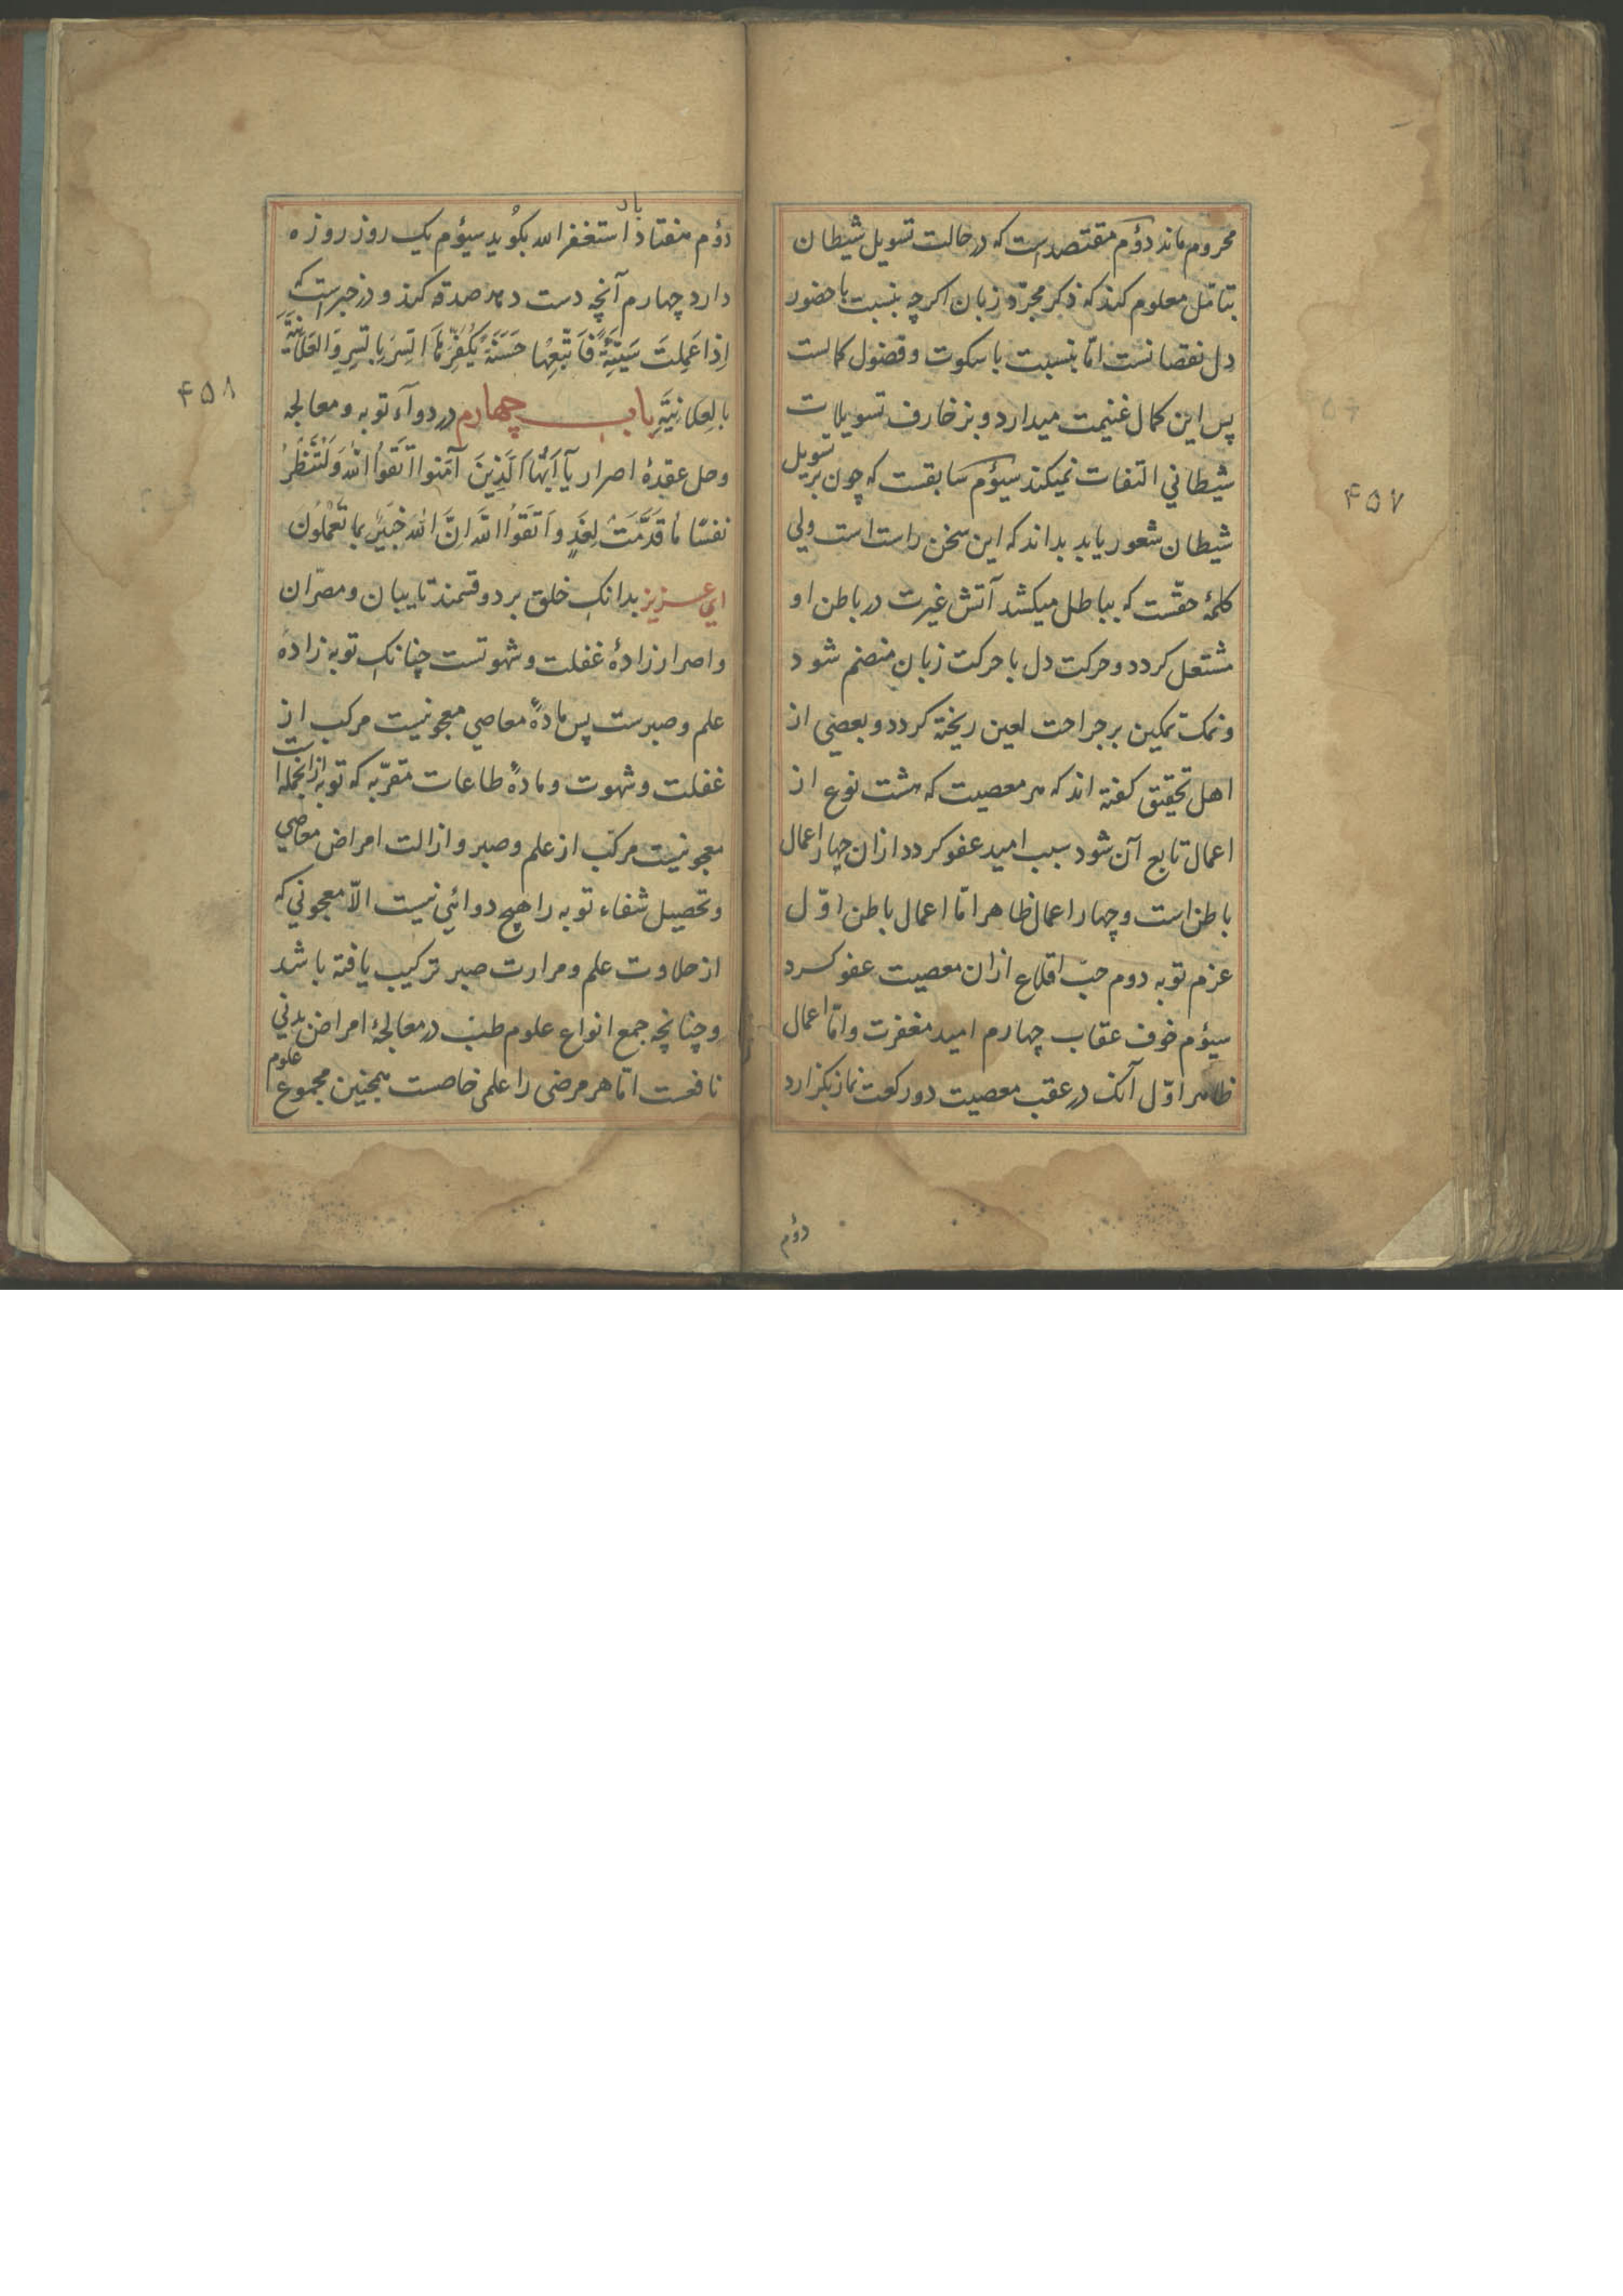 محروم ماند دوُم مقتصدست که در حالت تسویل شیطان
بتامّل معلوم کند که ذکر مجرّد زبان اکرچه بنسبت با حضور
دل نقصانست امّا بنسبت با سکوت و فضول کمالست
پس این کمال غنیمت میدارد و بزخارف تسویلات
شیطاني التفات نمیکند سیوُم سابقست که چون بر تسویل
شیطان شعور یابد بداند که این سخن راست است ولي
کلمهٔ حقّست که بباطل میکشد آتش غیرت در باطن او
مشتعل کردد و حرکت دل با حرکت زبان منضم شود
و نمک تمکین بر جراحت لعین ریخته کردد و بعضي از
اهل تحقیق کفته اند که هر معصیت که هشت نوع از
اعمال تابع آن شود سبب امید عفو کردد ازان چهار اعمال
باطن است و چهار اعمال ظاهر امّا اعمال باطن اوّل
عزم توبه دوم حبّ اقلاع ازان معصیت عفو کرد
سیوُم خوف عقاب چهارم امید مغفرت و امّا اعمال
ظاهر اوّل آنک در عقب معصیت دو رکعت نماز بکزارد
دوُم
۴۵۷
دوُم هفتاد بار استغفر الله بکوُید سیوُم یک روز روزه
دارد چهارم آنچه دست دهد صدقه کند و در خبر است که
اِذا عَمِلتَ سَیّئَةً فَاَتْبِعها حَسَنَةً یُکَفِّرُهَا اَلسِّرَ بِالسِّرِ وَالعَلانِیَّةَ
بالعَلانِیَّةِ باب چهارم در دوآء توبه و معالجه
و حل عقدهٔ اصرار یآ اَیُّها الَّذِینَ آمَنوا اتَّقَوُا اللهَ وَلْتَنْظُرْ
نفسٌ ما قَدَّمَتْ لِغَدٍ وَاتَّقَوُا الله اِنَّ اللهَ خَبَیرٌ بِما تَعْمَلُونَ
اي عزیز بدانک خلق بر دو قسمند تایبان و مصرّان
و اصرار زادهٔ غفلت و شهوتست چنانک توبه زادهٔ
علم و صبرست پس مادهٔ معاصي معجونیست مرکب از
غفلت و شهوت و مادهٔ طاعات مقرّبه که توبه ازانجمله است
معجونیست مرکّب از علم و صبر و ازالت امراض معاصي
و تحصیل شفاء توبه را هیچ دوائي نیست الّا معجوني که
از حلاوت علم و مرارت صبر ترکیب یافته باشد
و چنانچه جمع انواع علوم طب در معالجهٔ امراض بدني
نافعست امّا هر مرضی را علمی خاصست همچنین مجموع علوم
۴۵۸